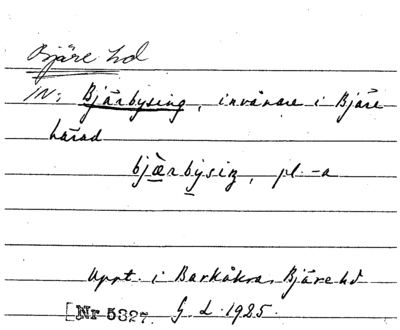 Bjäre hd
IN: Bjärbysing, invånare i Bjäre
härad
bjæ̀rbẏsiŋ, pl. -a
Uppt. i Barkåkra, Bjäre hd
[Nr 5327. G. L. 1925.